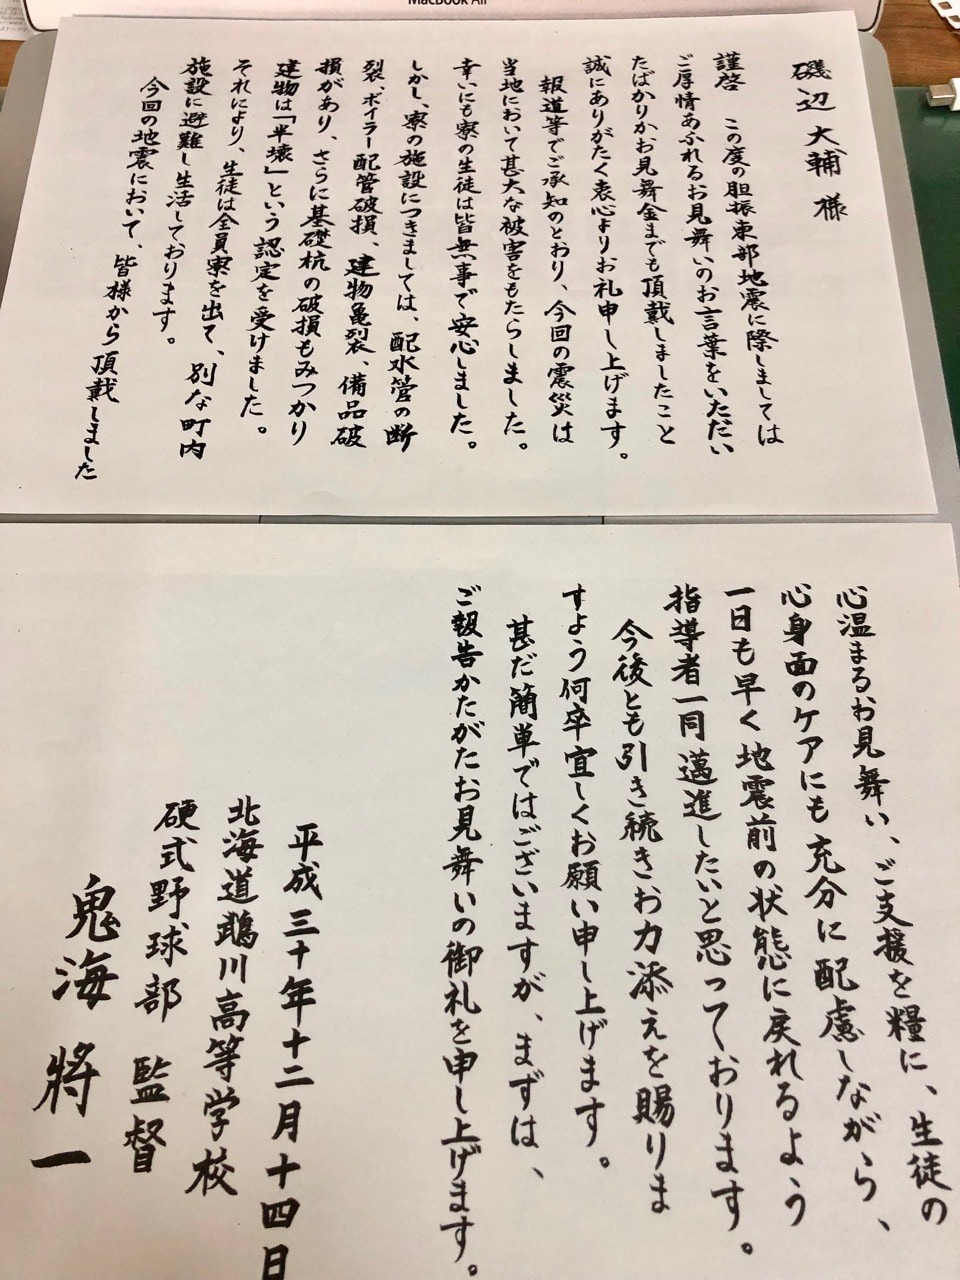 MacBook Air
磯辺 大輔 様
謹啓 この度の胆振東部地震に際しましては
ご厚情あふれるお見舞いのお言葉をいただい
たばかりかお見舞金までも頂戴しましたこと
誠にありがたく衷心よりお礼申し上げます。
報道等でご承知のとおり、今回の震災は
当地において甚大な被害をもたらしました。
幸いにも寮の生徒は皆無事で安心しました。
しかし、寮の施設につきましては、配水管の断
裂、ボイラー配管破損、建物亀裂、備品破
損があり、さらに基礎杭の破損もみつかり
建物は「半壊」という認定を受けました。
それにより、生徒は全員寮を出て、別な町内
施設に避難し生活しております。
今回の地震において、皆様から頂戴しました
心温まるお見舞い、ご支援を糧に、生徒の
心身面のケアにも充分に配慮しながら、
一日も早く地震前の状態に戻れるよう
指導者一同邁進したいと思っております。
今後とも引き続きお力添えを賜りま
すよう何卒宜しくお願い申し上げます。
甚だ簡単ではございますが、まずは、
ご報告かたがたお見舞いの御礼を申し上げます。
平成三十年十二月十四日
北海道鵡川高等学校
硬式野球部 監督
鬼海 将一